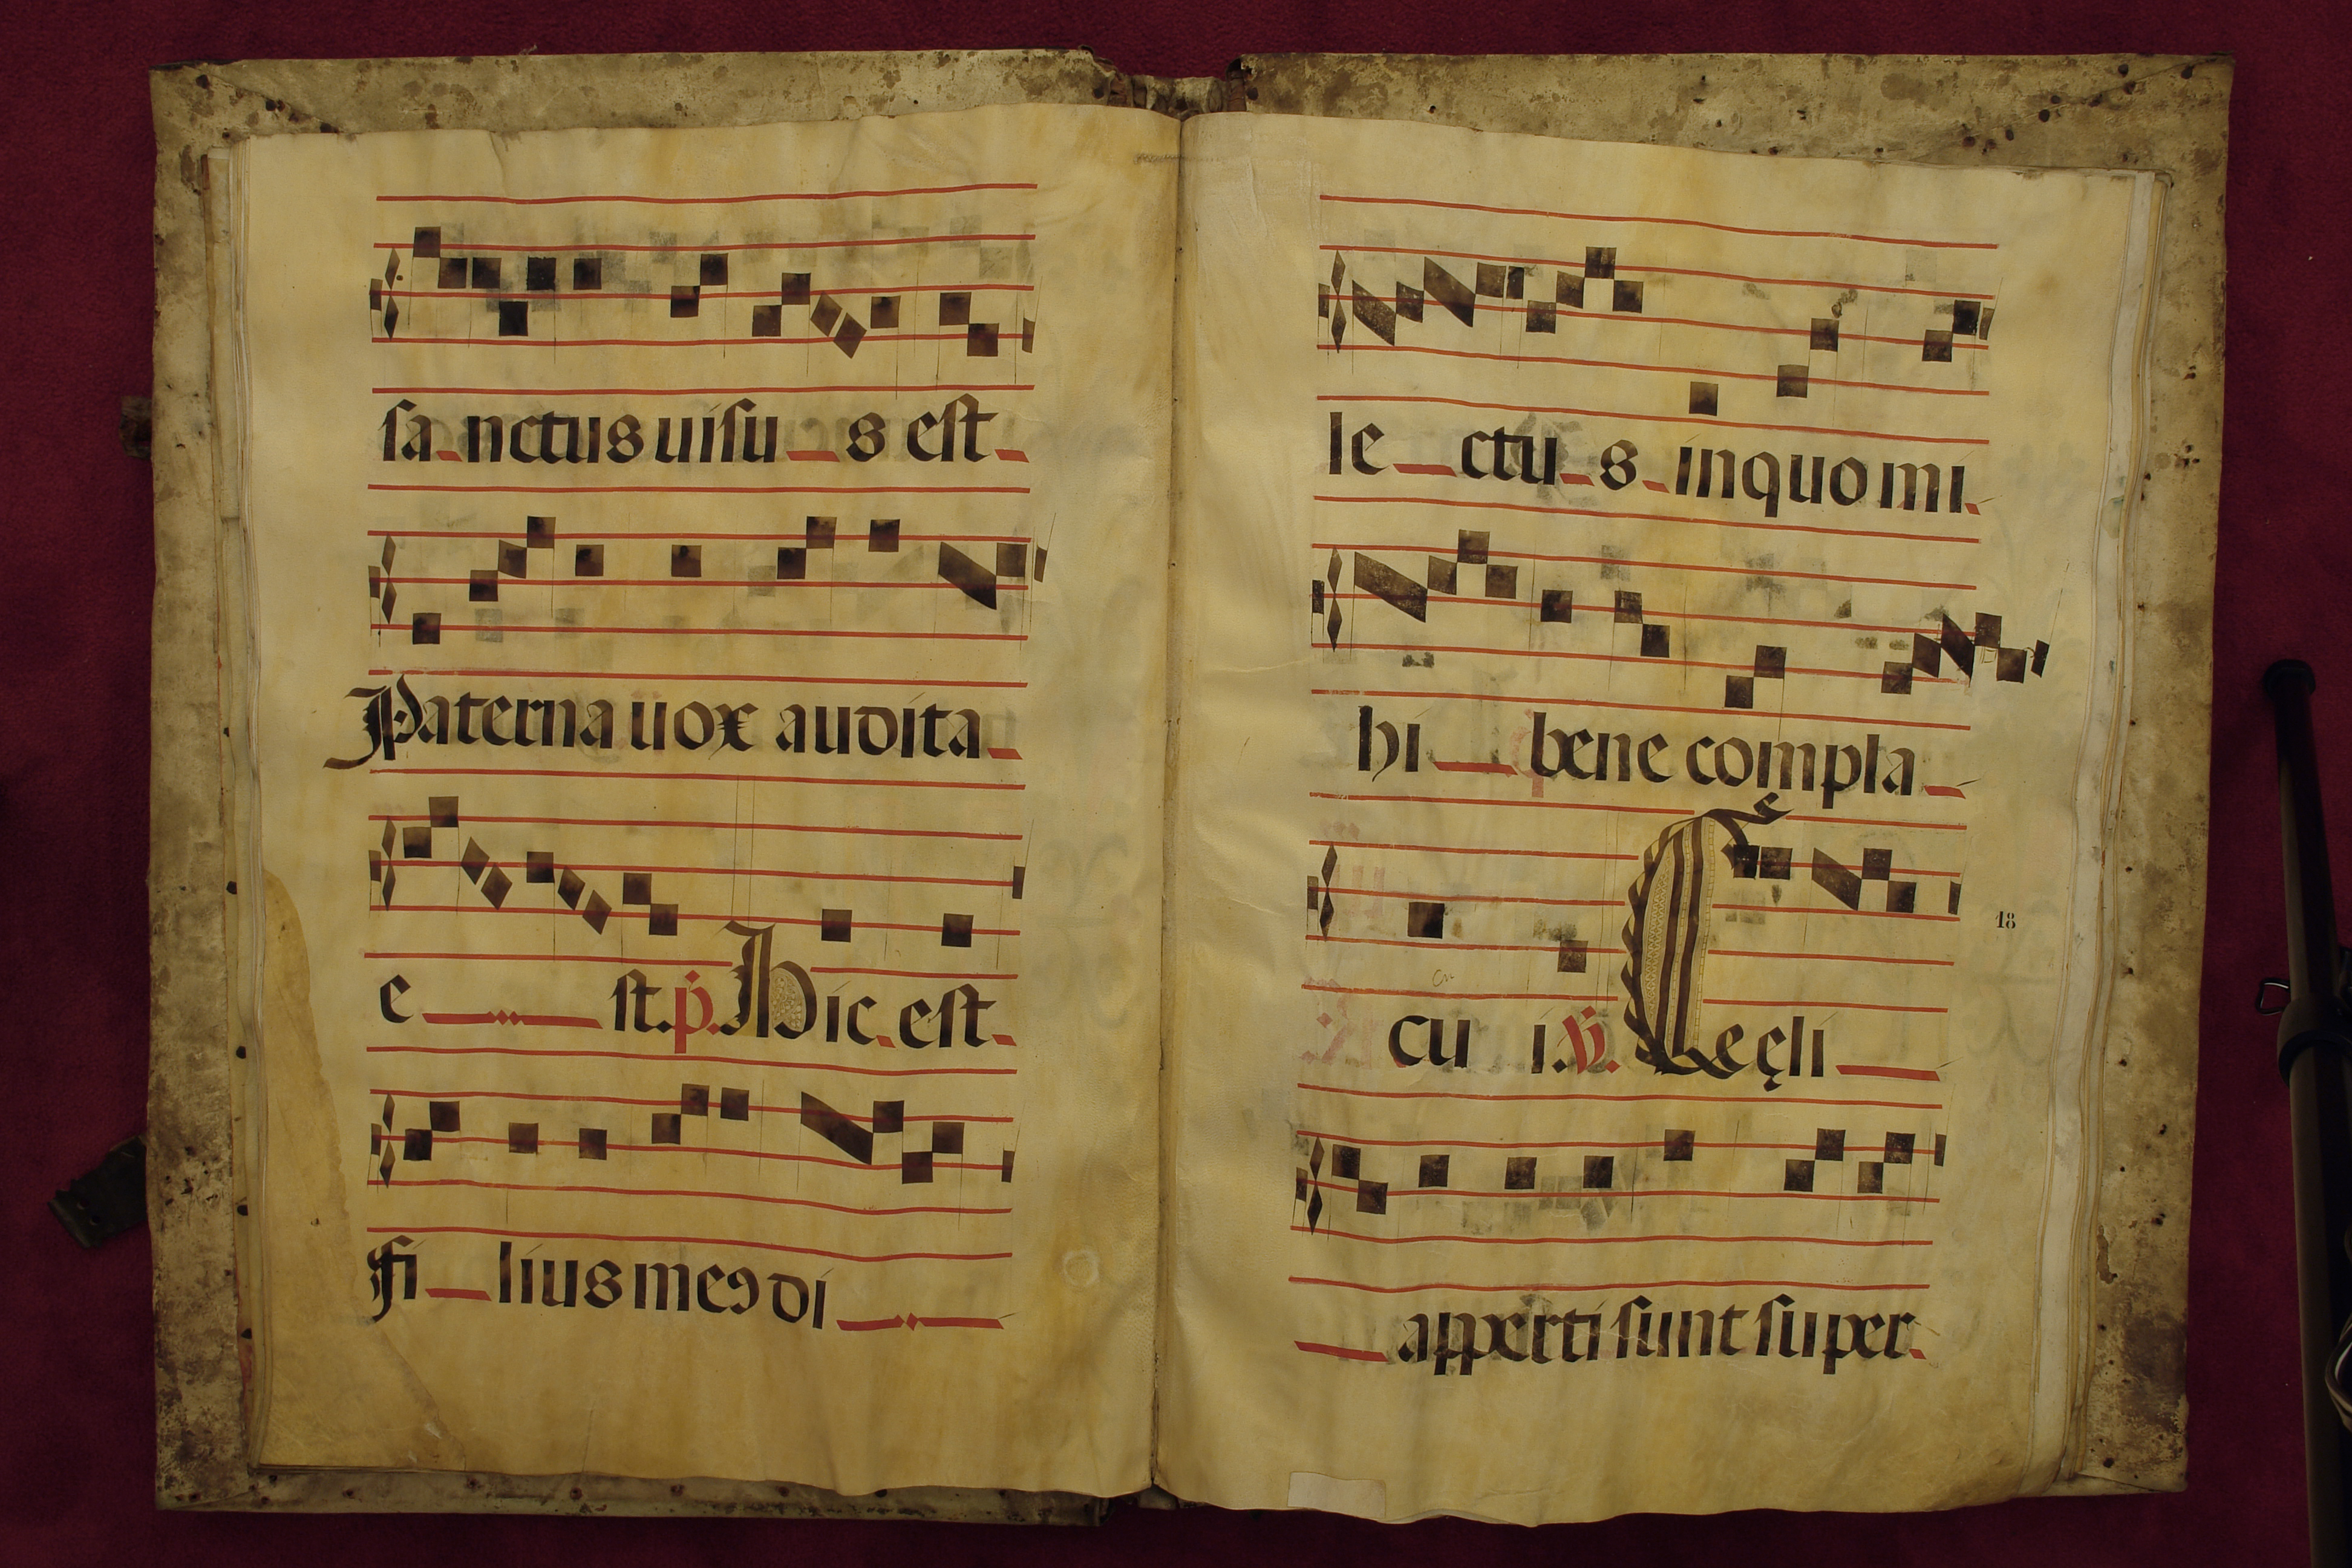 sa nctus uisu s est
Paterna uox audita
e st. p. Hic est
fi lius meꝯ di
le ctu s in quo mi
hi bene compla
cu i. ℣. Cęli
18
apperti sunt super